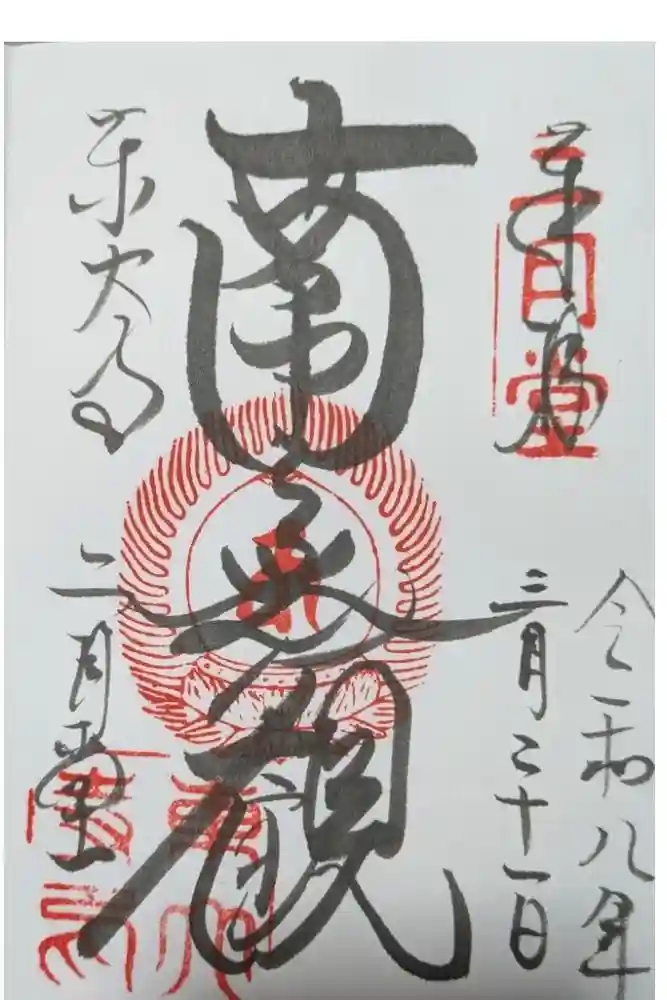 奉拝
二月堂
令和八年
三月二十一日
南無観
東大寺
二月堂